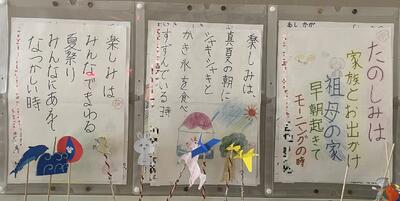 たのしみは
家族とお出かけ
祖母の家
早朝起きて
モーニングの時
楽しみは、
真夏の朝に
シャキシャキと
かき氷を食べ
すずんでいる時
楽しみは、
みんなでまわる
夏祭り
みんなにあえて
なつかしい時